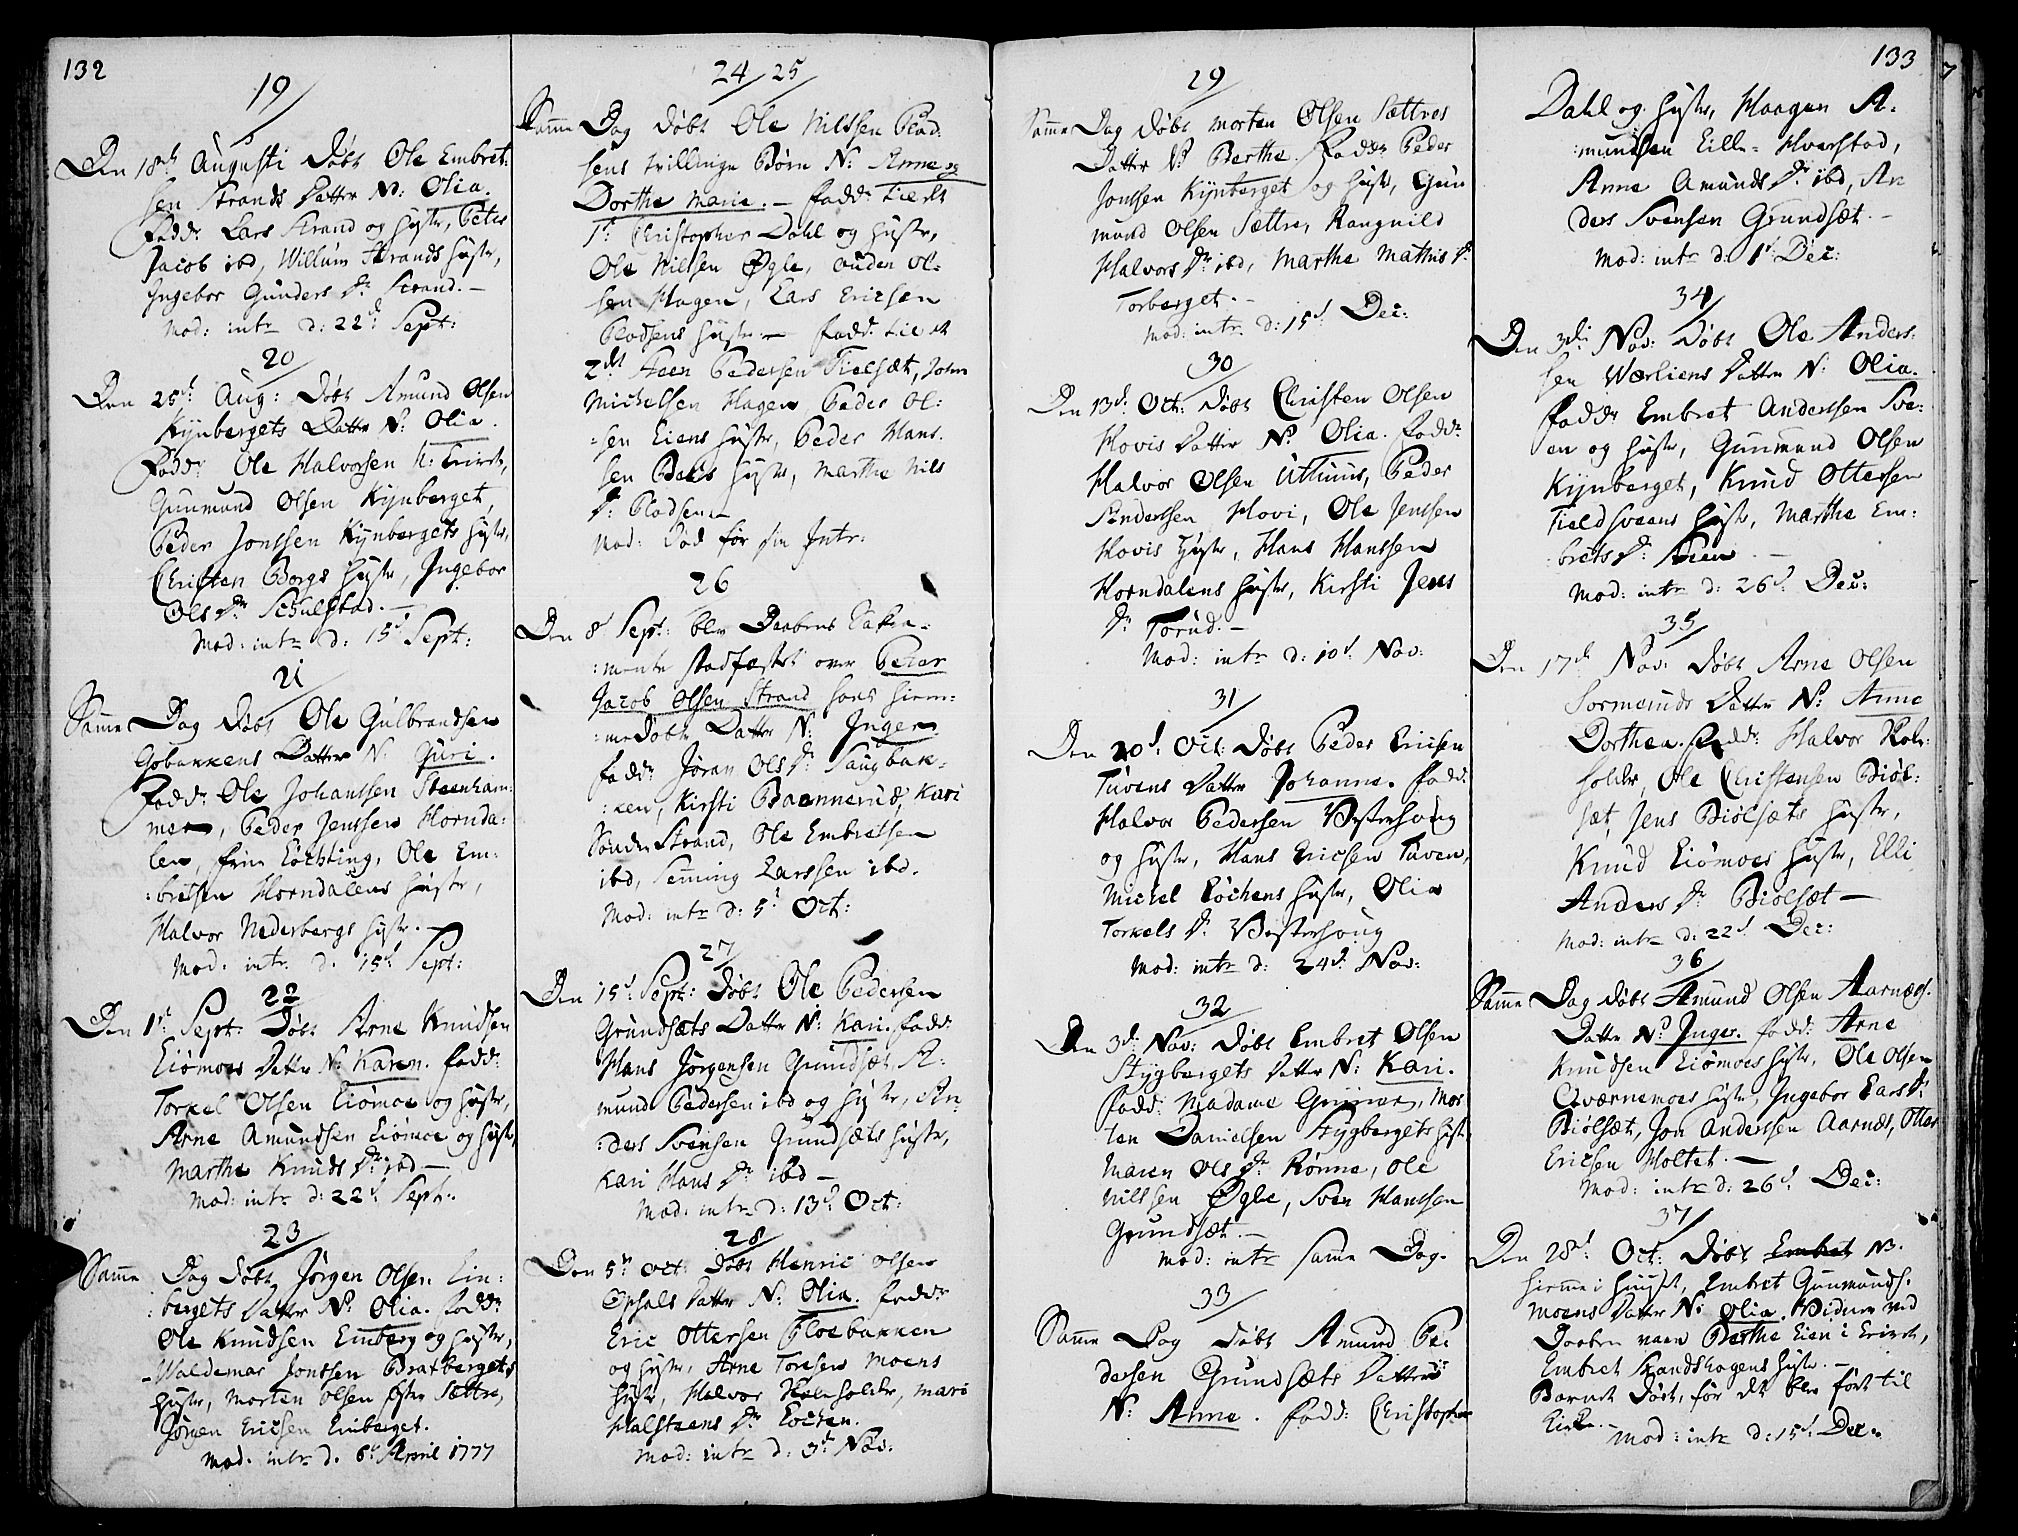 132
19
Den 18de Augusti Döbt Ole Embret:
sen Strands Datter N: Olia.
Fadd: Lars Strand og Hustr, Peter
Jacob ibd, Willum Strands Hustr,
Ingebor Gunders Dr Strand. –
Mod: intr d: 22d Sept:
20
Den 25d Aug: Döbt Amund Olsen
Kynbergets Datter N: Olia.
Fadd: Ole Halvorsen
Gunmund Olsen Kynberget,
Peder Jonssen Kynbergets Hustr,
Christen Borgs Hustr, Ingebor
Ols Dr Schulstad. –
Mod: intr d: 15d Sept:
21
Samme Dag Döbt Ole Gulbrandsen
Gobakkens Datter N: Guri.
Fadd: Ole Johanssen Steenham:
mer, Peder Jenssen Hornda:
len, Ole Em:
:bretsen Horndalens Hustr,
Halvor Nederbergs Hustr. –
Mod: intr. d. 15d Sept:
22
Den 1st Sept: Döbt Arne Knudsen
Eiömoes Datter N: Karen. Fadd:
Torkel Olsen Eiömoe og Hustr,
Arne Amundsen Eiömoe og Hustr,
Marthe Knuds Dr ibd –
Mod: intr d: 22d Sept:
23
Samme Dag Döbt Jörgen Olsen Ein:
:bergets Datter N: Olia. Fadd:
Ole Knudsen Emberg og Hustr,
Waldemar Jonssen Braxbergets
Hustr, Morten Olsen Sættre,
Jörgen Ericsen Einberget.
Mod. intr d. 6t April 1777
24/25
Samme Dag Döbt Ole Nilssen Plad:
sens tvillinge Börn N: Anne og
Dorthe Marie. – Fadd: til det
1st: Christopher Dahl og Hustr,
Ole Nilssen Ögle, Auden Ol:
sen Hagen, Lars Ericsen
Pladsens Hustr – Fadd: til det
2det Steen Pedersen Fielsæt, John
Michelsen Hagen, Peder Ol:
:sen Eiens Hustr, Peder Hans.
sen Hustr, Marthe Nils
Dr Pladsen –
Mod: död för sin Intr:
26
Den 8d Sept: blev Daabens Sacra-
:mente stadfæstet over Peter
Jacob Olsen Strand hans hiem:
:me Döbte Datter N: Inger
Fadd: Jöran Ols Dr Haugbak:
:ken, Kirsti Baannerud, Kari
Sönder Strand, Ole Embretsen
ibd, Larssen ibd.
Mod: intr d: 5d Oct:
27
Den 15d Sept: Döbt Ole Pedersen
Grundsæts Datter N: Kari. Fadd:
Hans Jörgensen Grundsæt, A-
mund Pedersen ibd og Hustr, An:
:ders Svensen Grundsæts Hustr,
Kari Hans Dr ibd –
Mod: intr d: 13d Oct:
28
Den 5te Oct: Döbt Henric Olsen
Opsals Datter N: Olia. Fadd:
Eric Ottersen Floebakken
og Hustr, Arne Toresen Moens
Hustr, Halvor Kolsholdr, Mari
Halsteens Dr Lochen.
Mod: intr d: 3d Nov:
29
Samme Dag Döbt Morten Olsen Sættres
Datter N: Berthe. Fadd: Peder
Jonssen Kynberget og Hustr, Gun
mund Olsen Sættre, Rangnild
Halvors Dr ibd, Marthe Mathis Dr
Torberget. –
Mod: intr. d: 15d Dec:
30
Den 13d: Oct: Döbt Christen Olsen
Hovis Datter N: Olia. Fadd:
Halvor Olsen Uthuus, Peder
Anderssen Hovi, Ole Jenssen
Hovis Hustr, Hans Hanssen
Horndalens Hustr, Kirsti Jens
Dr Torud. –
Mod: intr d: 10d. Nov:
31
Den 20d. Oct: Döbt Peder Ericsen
Tuvens Datter Johanne. Fadd:
Halvor Pedersen Westerhoug
og Hustr, Hans Ericsen Tuven,
Michel Löchens Hustr, Olia
Torkels Dr Westerhoug
Mod: intr d: 24d. Nov:
32
Den 3d Nov: Döbt Embret Olsen
Stygbergets Datter N: Kari.
Fadd: Madame Grüner, Mor
ten Danielsen Stygbergets Hustr
Maren Ols Dr Rönne, Ole
Nilssen Ögle, Sven Hanssen
Grundsæt. –
Mod: intr samme Dag.
33
Samme Dag Döbt Amund Pe:
dersen Grundsæts Datter
N: Anne. Fadd: Christopher
133
Dahl og Hustr, Haagen A-
:mundsen Eille- Hverstad,
Anne Amunds Dr ibd, An
ders Svensen Grundsæt. –
Mod: intr d: 1st Dec:
34
Den 3die Nov: Döbt Ole Anders:
sen Wærliens Datter N: Olia.
Fadd: Embret Anderssen Sve:
en og Hustr, Gunmund Olsen
Kynberget, Knud Ottersen
Fieldsveens Hustr, Marthe Em:
:brets Dr Steen. –
Mod: intr d: 26d. Dec:
35
Den 17d Nov: Döbt Arne Olsen
Sormunds Datter N: Anne
Dorthea. Fadd: Halvor Kols:
holdr, Ole Christensen Biöl:
sæt, Jens Biölsæts Hustr,
Knud Eiömoes Hustr, Elli
Anders Dr Biölsæt –
Mod: intr d: 22d. Dec:
36
Samme Dag Döbt Amund Olsen Aarnæs.
Datter N: Inger. Fadd: Arne
Knudsen Eiömoes Hustr, Ole Olsen
Qværnemoes Hustr, Ingebor Lars Dr
Biölsæt, Jon Anderssen Aarnæs, Otter
Ericsen Holtet. –
Mod: intr d: 26d. Dec:
37
Den 28d: Oct: Döbt Embret NB.
hiemme i Huuset, Embret Gunmunds.
Moens Datter N: Olia. Vidner ved
Daaben vare Berthe Eien i Elvret,
Embret Strandskogens Hustr. –
Barnet Döde, för det blev fört til
Kirke. – Mod: intr d: 15d. Dec: